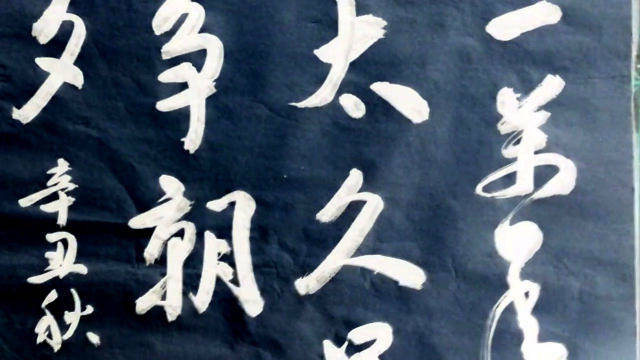 一萬年
太久只
争朝
夕
辛丑秋